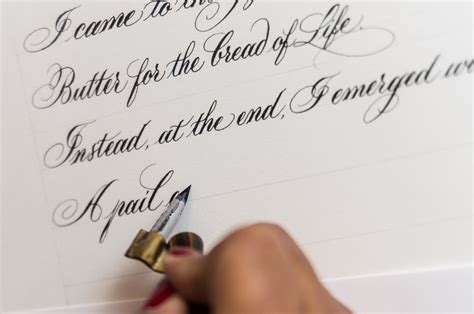 I came to the
Butter for the bread of Life.
Instead, at the end, I emerged
A pail